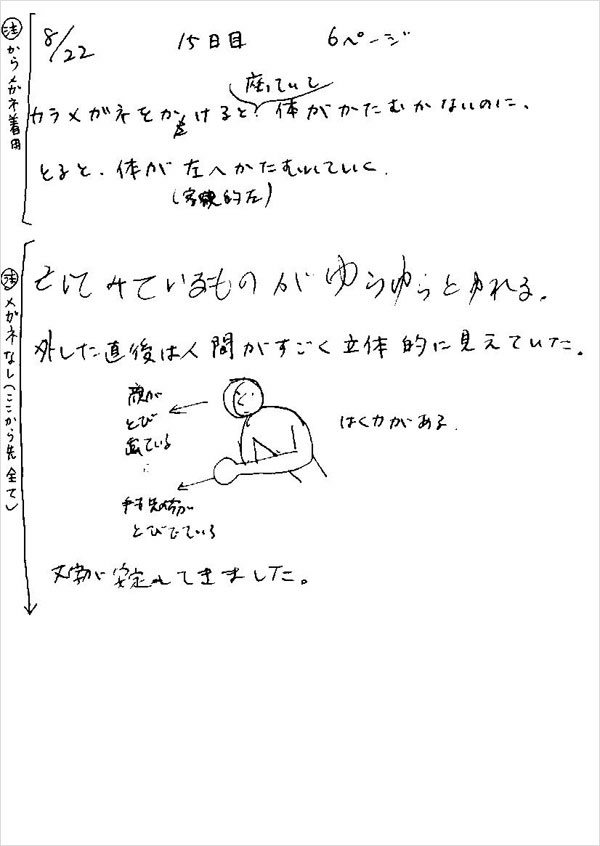 8/22 15日目 6ページ
注 からメガネ着用
座っていて
カラメガネをかけると、体がかたむかないのに、
とると、体が左へかたむいていく
(客観的左)
注 メガネなし(ここから先全て)
そしてみているものがゆらゆらとゆれる。
外した直後は人間がすごく立体的に見えていた。
顔が
とび
出ている
はく力がある。
手先の方が
とびでている
文字が安定してきました。